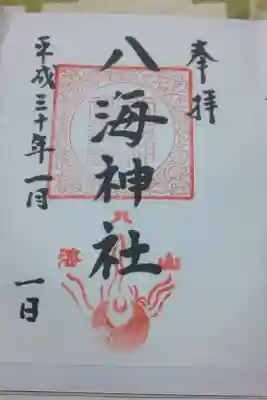 奉拝
八海神社
八
海
山
平成三十年一月
一日